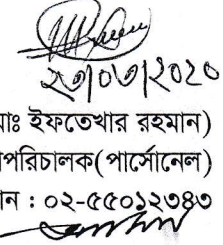 ২৩/০৩/২০২০
মোঃ ইফতেখার রহমান)
পরিচালক(পার্সোনেল)
ন : ০২-৫৫০১২৩৪৩